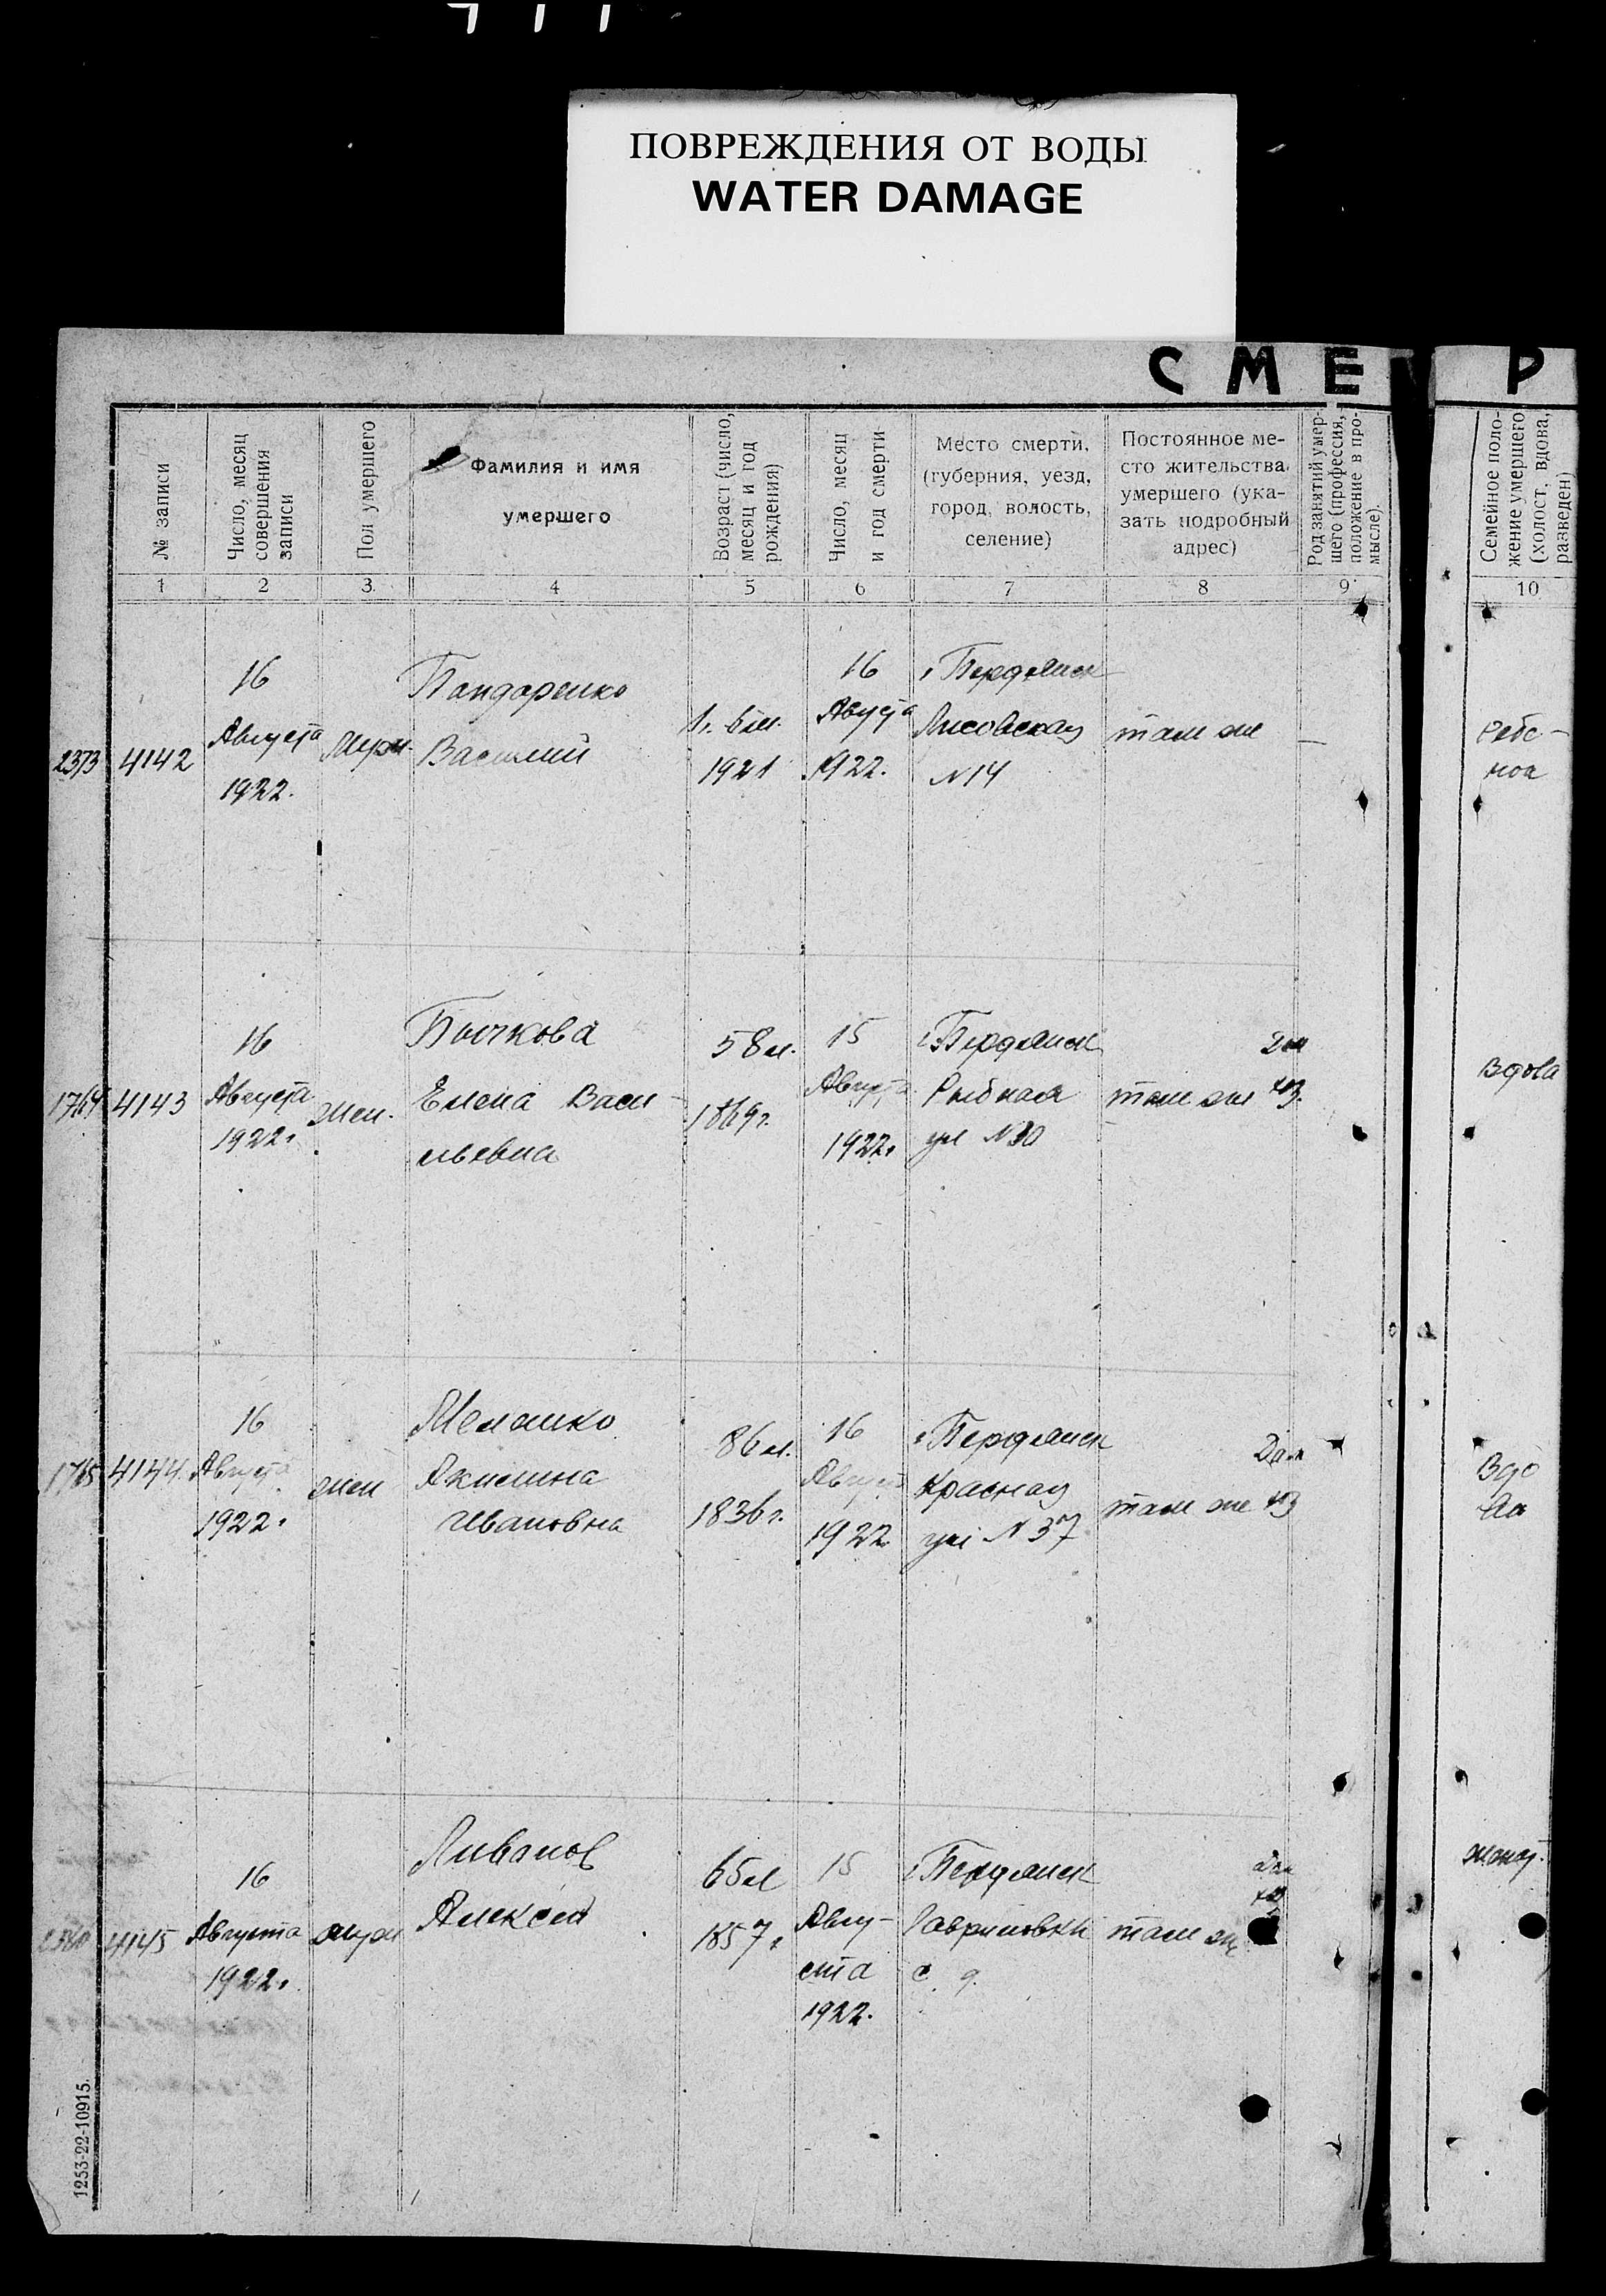 ПОВРЕЖДЕНИЯ ОТ ВОДЫ
WATER DAMAGE
С М Е Р
№ записи
Число, месяц
совершения
записи
Пол умершего
Фамилия и имя
умершего
Возраст (число,
месяц и год
рождения)
Число, месяц
и год смерти
Место смерти,
(губерния, уезд,
город, волость,
селение)
Постоянное ме-
сто жительства
умершего (ука-
зать подробный
адрес)
Род занятий умер-
шего (профессия,
положение в про-
мысле).
Семейное поло-
жение умершего
(холост, вдова,
разведен)
1 2 3 4 5 6 7 8 9 10
2373
4142
16
Августа
1922.
Муж.
Бандаренко
Василий
1921
16
Августа
1922.
Бердянск
Лисовская
N 14
там же
—
Ребе-
нок
1764
4143
16
Августа
1922г
Жен.
Бычкова
Елена Васи-
льевна
58 л.
1869г.
15
Августа
1922г
г Бердянск
Рыбная
ул N 30
там же
Вдова
1765
4144.
16
Августа
1922г
жен
Мелашко
Акилина
Ивановна
86 л.
1836г.
16
Августа
1922
г Бердянск
Красная
ул N 37
там же
Вдо
ва
4145
16
Августа
1922г.
муж
Ливанов
Алексей
65 л
1857г
15
Авгу-
ста
1922.
г Бердянск
с.
там же
женат.
1253-22-10915.